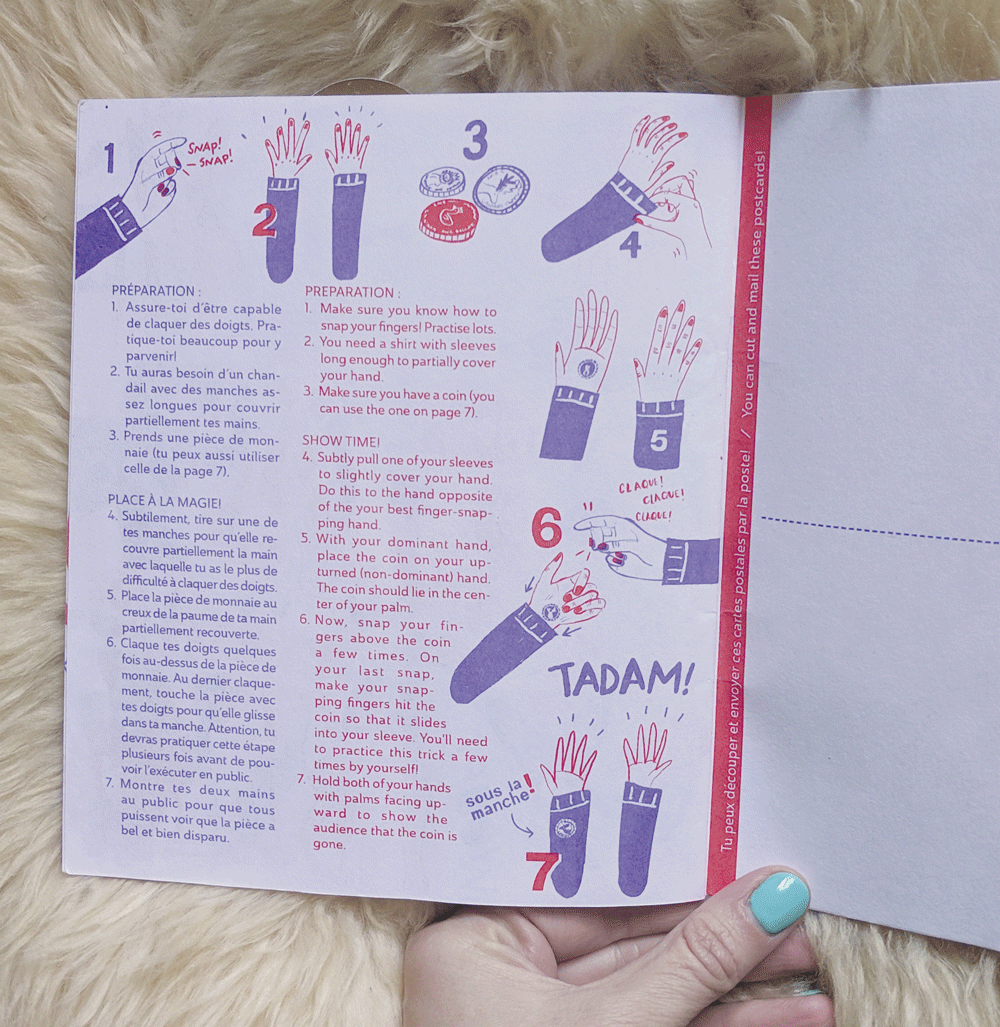 1
SNAP!
SNAP!
2
3
4
PRÉPARATION :
1. Assure-toi d'être capable
de claquer des doigts. Pra-
tique-toi beaucoup pour y
parvenir!
2. Tu auras besoin d'un chan-
dail avec des manches as-
sez longues pour couvrir
partiellement tes mains.
3. Prends une pièce de mon-
naie (tu peux aussi utiliser
celle de la page 7).
PLACE À LA MAGIE!
4. Subtilement, tire sur une de
tes manches pour qu'elle re-
couvre partiellement la main
avec laquelle tu as le plus de
difficulté à claquer des doigts.
5. Place la pièce de monnaie au
creux de la paume de ta main
partiellement recouverte.
6. Claque tes doigts quelques
fois au-dessus de la pièce de
monnaie. Au dernier claque-
ment, touche la pièce avec
tes doigts pour qu'elle glisse
dans ta manche. Attention, tu
devras pratiquer cette étape
plusieurs fois avant de pou-
voir l'exécuter en public.
7. Montre tes deux mains
au public pour que tous
puissent voir que la pièce a
bel et bien disparu.
PREPARATION :
1. Make sure you know how to
snap your fingers! Practise lots.
2. You need a shirt with sleeves
long enough to partially cover
your hand.
3. Make sure you have a coin (you
can use the one on page 7).
SHOW TIME!
4. Subtly pull one of your sleeves
to slightly cover your hand.
Do this to the hand opposite
of the your best finger-snap-
ping hand.
5. With your dominant hand,
place the coin on your up-
turned (non-dominant) hand.
The coin should lie in the cen-
ter of your palm.
6. Now, snap your fin-
gers above the coin
a few times. On
your last snap,
make your snap-
ping fingers hit the
coin so that it slides
into your sleeve. You'll need
to practice this trick a few
times by yourself!
7. Hold both of your hands
with palms facing up-
ward to show the
audience that the coin is
gone.
5
CLAQUE!
CLAQUE!
CLAQUE!
6
TADAM!
sous la
manche!
7
Tu peux découper et envoyer ces cartes postales par la poste! / You can cut and mail these postcards!